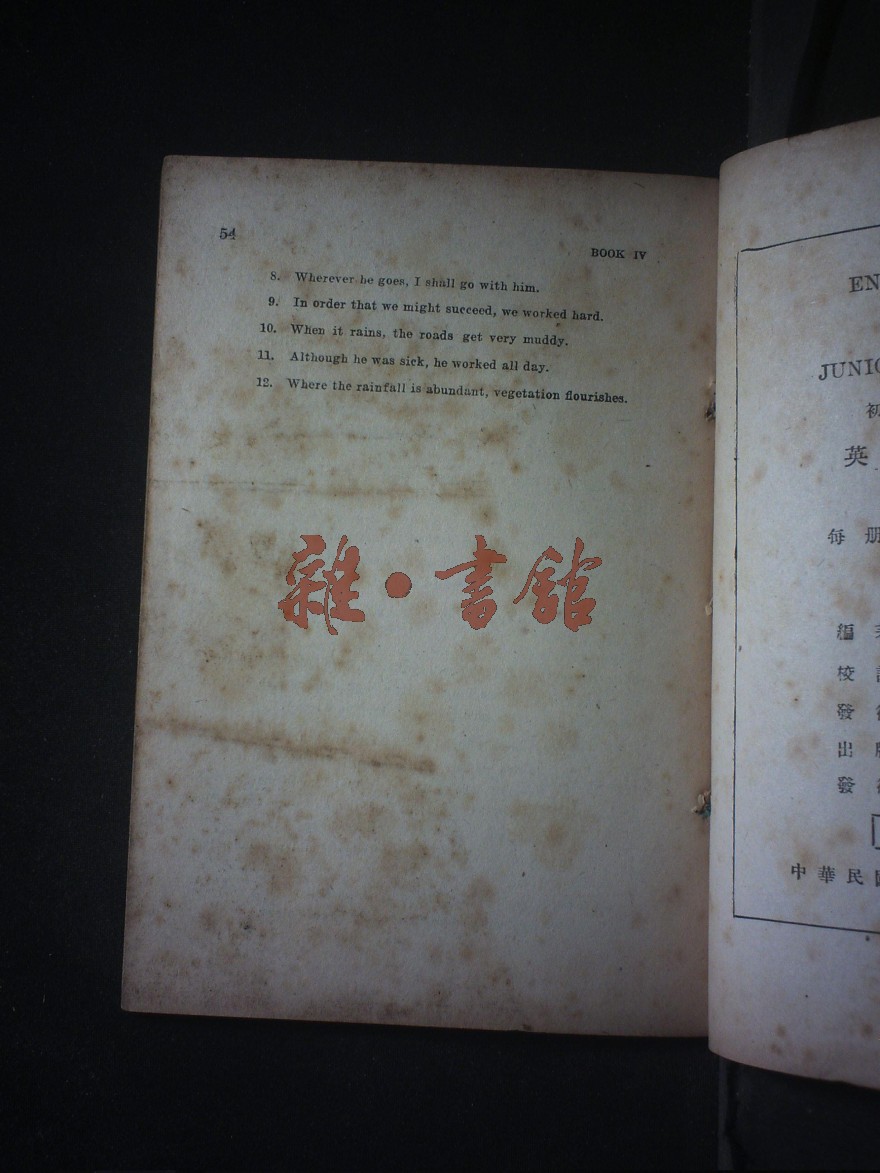 54
BOOK IV
8. Wherever he goes, I shall go with him.
9. In order that we might succeed, we worked hard.
10. When it rains, the roads get very muddy.
11. Although he was sick, he worked all day.
12. Where the rainfall is abundant, vegetation flourishes.
雜•書館
EN
JUNIO
初
英
每册
編
校
發
出
發
中華民